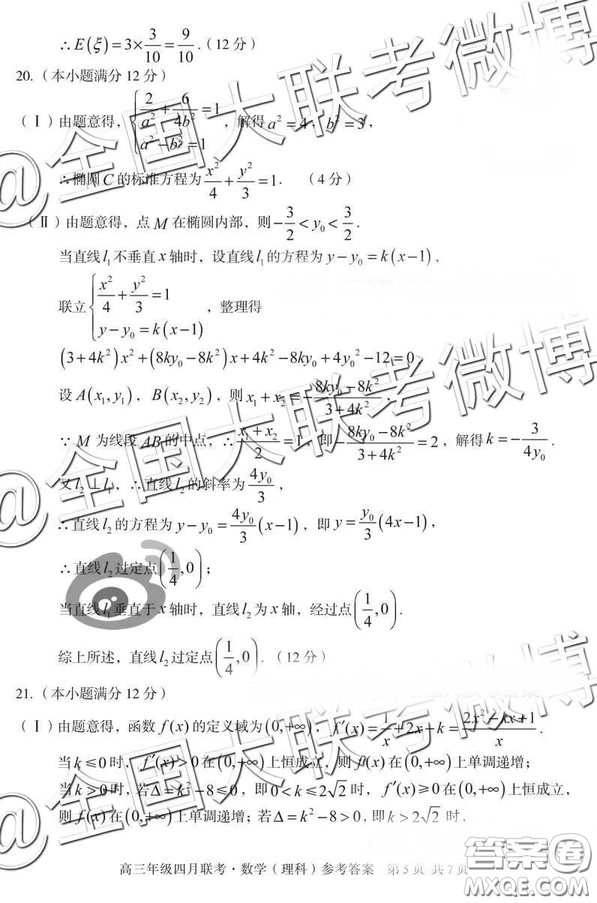 ∴E(ξ)=3×3/10=9/10.(12分)
20.(本小题满分12分)
(Ⅰ)由题意得,{2/a²+6/4b²=1, a²-b²=1,解得a²=4,b²=3,
∴椭圆C的标准方程为x²/4+y²/3=1. (4分)
(Ⅱ)由题意得,点M在椭圆内部,则-3/2<y₀<3/2.
当直线l₁不垂直x轴时,设直线l₁的方程为y-y₀=k(x-1),
联立{x²/4+y²/3=1, y-y₀=k(x-1),整理得
(3+4k²)x²+(8ky₀-8k²)x+4k²-8ky₀+4y₀²-12=0,
设A(x₁,y₁),B(x₂,y₂),则x₁+x₂=-(8ky₀-8k²)/(3+4k²),
∵M为线段AB的中点,∴(x₁+x₂)/2=1,即-(8ky₀-8k²)/(3+4k²)=2,解得k=-3/(4y₀).
又l₂⊥l₁,∴直线l₂的斜率为4y₀/3,
∴直线l₂的方程为y-y₀=4y₀/3(x-1),即y=y₀/3(4x-1),
∴直线l₂过定点(1/4,0);
当直线l₁垂直于x轴时,直线l₂为x轴,经过点(1/4,0).
综上所述,直线l₂过定点(1/4,0).(12分)
21.(本小题满分12分)
(Ⅰ)由题意得,函数f(x)的定义域为(0,+∞),f′(x)=1/x+2x-k=(2x²-kx+1)/x.
当k≤0时,f′(x)>0在(0,+∞)上恒成立,则f(x)在(0,+∞)上单调递增;
当k>0时,若Δ=k²-8≤0,即0<k≤2√2时,f′(x)≥0在(0,+∞)上恒成立,
则f(x)在(0,+∞)上单调递增;若Δ=k²-8>0,即k>2√2时,
高三年级四月联考·数学(理科)参考答案 第5页 共7页
@全国大联考微博
@全国大联考微博
@全国大联考微博
答案圈
MXQE.COM